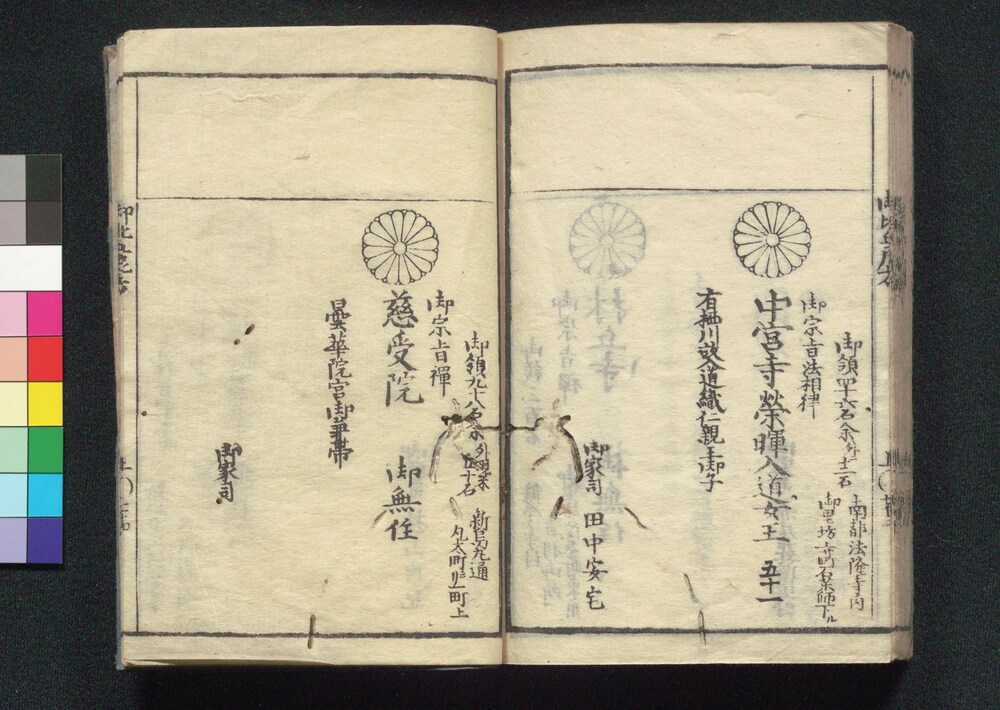 御領四十六石余外十二石
南都法隆寺内
御里坊寺町石薬師下ル
御宗旨法相律
中宮寺榮暉入道女王 五十一
有栖川故入道織仁親王御子
御家司 田中安宅
御領九十八石余
新烏丸通
丸太町
町上
御宗旨禪
慈受院 御無住
曇華院宮御兼帯
御家司